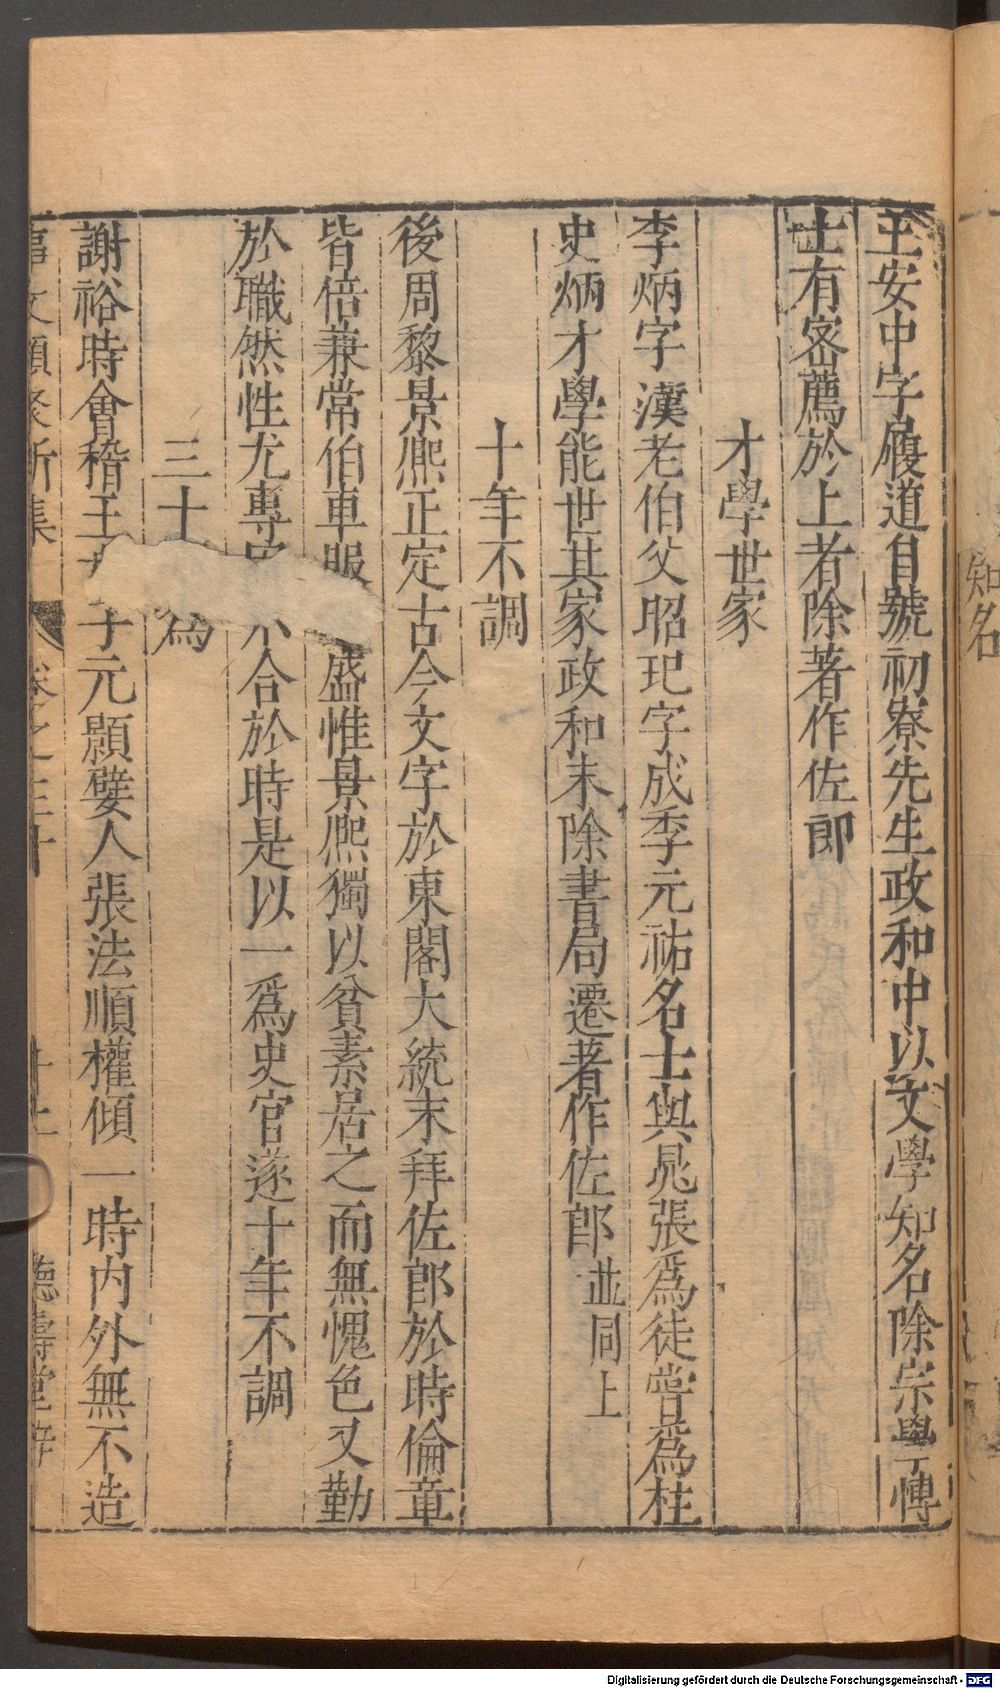 知名
王安中字履道自號初寮先生政和中以文學知名除宗學愽
士有宻薦於上者除著作佐郎
才學世家
李炳字漢老伯父昭玘字成季元祐名士與晁張爲徒甞爲柱
史炳才學能世其家政和末除書局遷著作佐郎並同上
十年不調
後周黎景熈正定古今文字於東閣大統末拜佐郎於時倫章
皆倍兼常伯車服 盛惟景熈獨以貧素居之而無愧色又勤
於職然性尤專 不合於時是以一爲史官遂十年不調
三十 爲
謝裕時會稽王 子元顯嬖人張法順權傾一時内外無不造
事文類聚新集 卷之三十 德壽堂梓
Digitalisierung gefördert durch die Deutsche Forschungsgemeinschaft - DFG